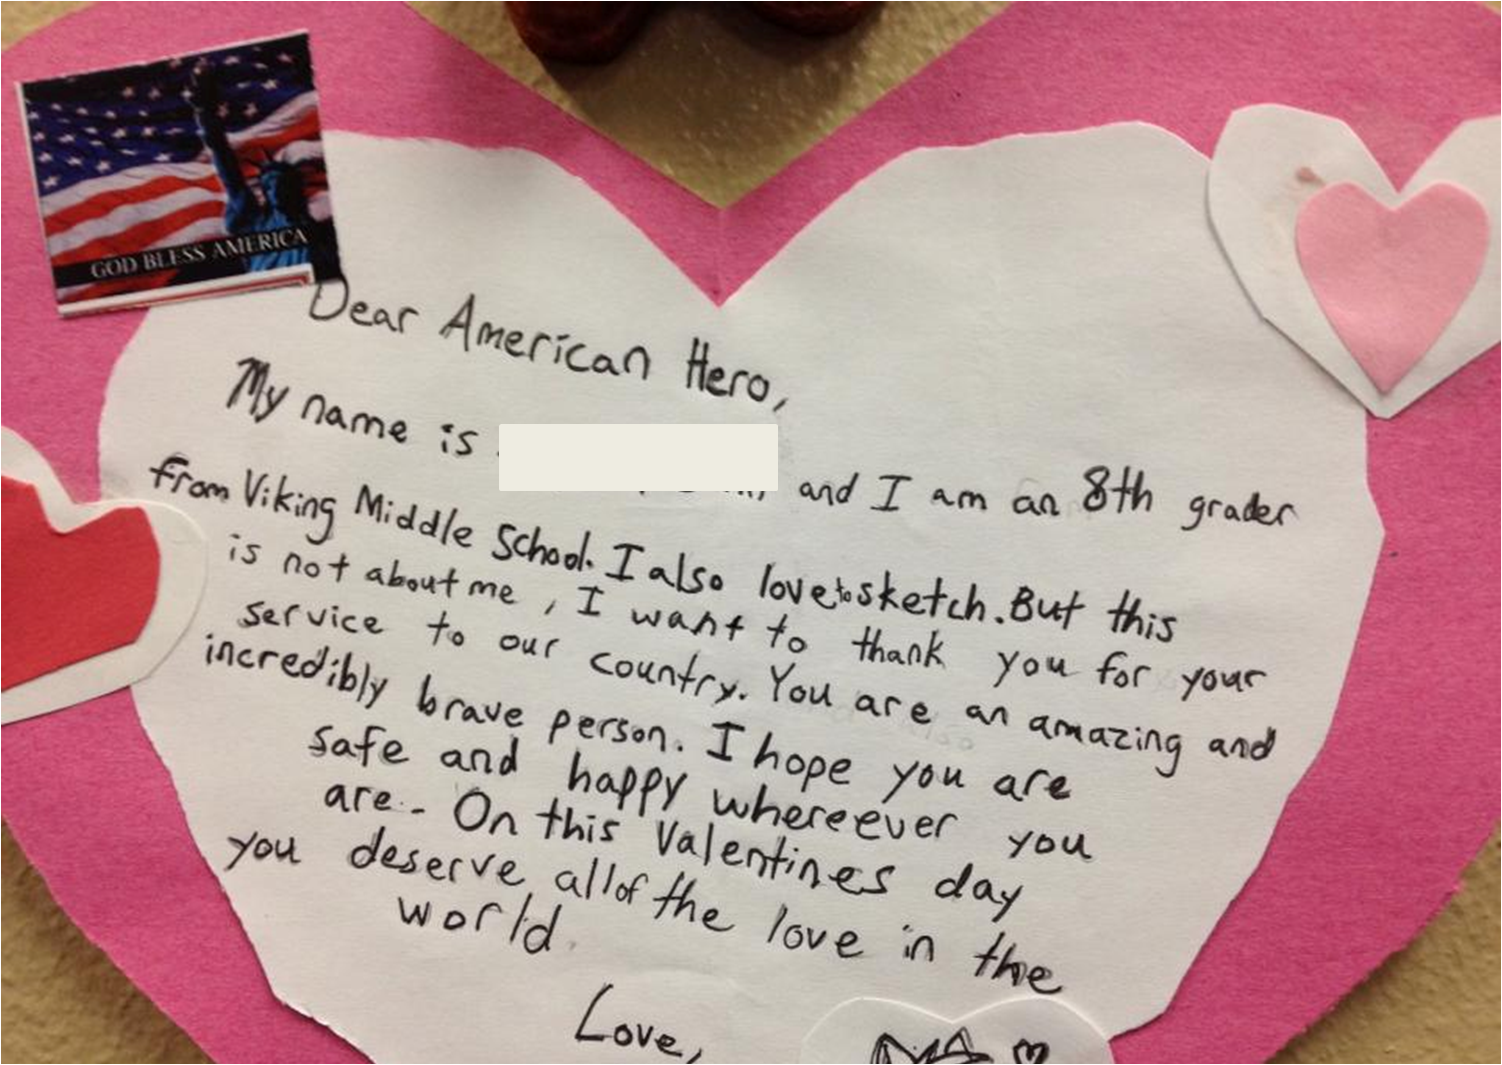 GOD BLESS AMERICA
Dear American Hero,
My name is and I am an 8th grader
from Viking Middle School. I also love to sketch. But this
is not about me, I want to thank you for your
service to our country. You are an amazing and
incredibly brave person. I hope you are
safe and happy whereever you
are. On this Valentines day
you deserve all of the love in the
world.
Love,